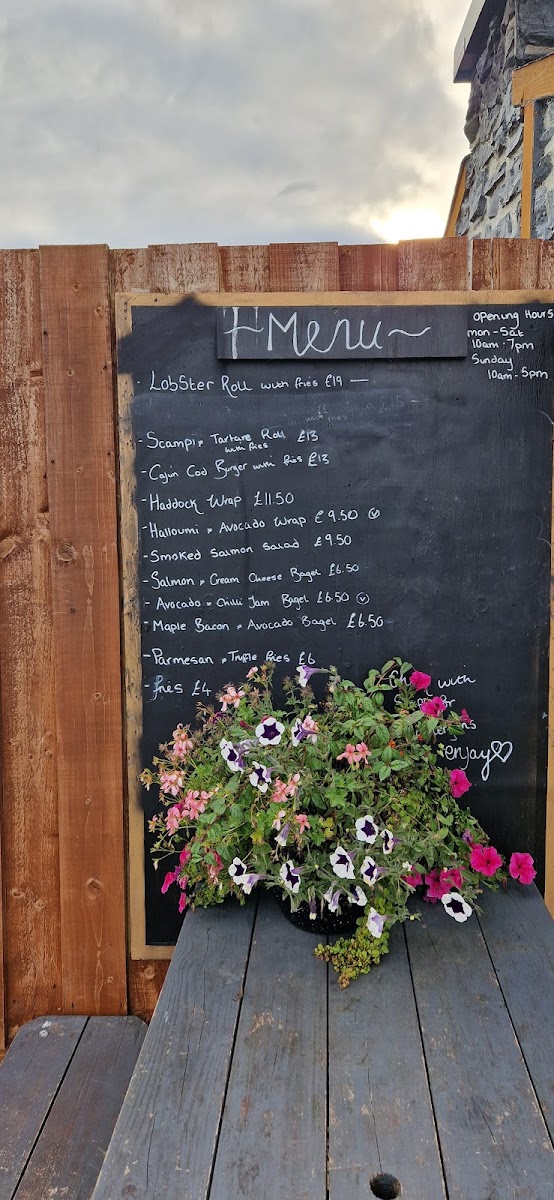 Menu
Opening Hours
mon - Sat
10am - 7pm
Sunday
10am - 5pm
- Lobster Roll with fries £19 —
- Scampi & Tartare Roll £13
with fries
- Cajun Cod Burger with fries £13
- Haddock Wrap £11.50
- Halloumi & Avocado Wrap £9.50 (v)
- Smoked Salmon Salad £9.50
- Salmon & Cream Cheese Bagel £6.50
- Avocado & Chilli Jam Bagel £6.50 (v)
- Maple Bacon & Avocado Bagel £6.50
- Parmesan & Truffle fries £6
- fries £4
with
enjoy ♡